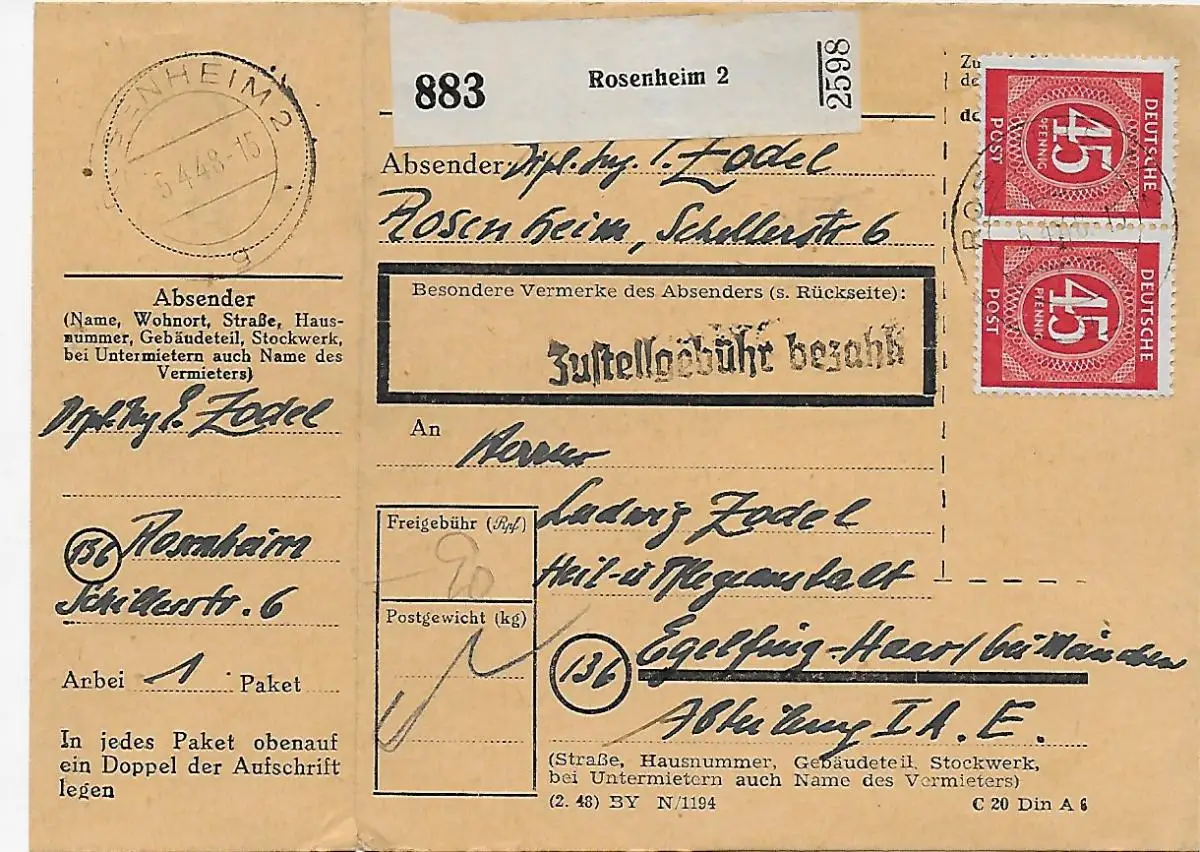 ROSENHEIM 2
5.4.48-15
b
Absender
(Name, Wohnort, Straße, Haus-
nummer, Gebäudeteil, Stockwerk,
bei Untermietern auch Name des
Vermieters)
Dipl. Ing. E. Zodel
(13b) Rosenheim
Schillerstr. 6
Anbei 1 Paket
In jedes Paket obenauf
ein Doppel der Aufschrift
legen
883 Rosenheim 2 2598
Absender: Dipl. Ing. Zodel
Rosenheim, Schillerstr 6
Besondere Vermerke des Absenders (s. Rückseite):
Zustellgebühr bezahlt
An Herrn
Ludwig Zodel
Heil- u Pflegeanstalt
(13b) Egelfing-Haar/bei München
Abteilung I A. E.
(Straße, Hausnummer, Gebäudeteil, Stockwerk,
bei Untermietern auch Name des Vermieters)
(2. 48) BY N/1194 C 20 Din A 6
Freigebühr (Rpf)
90
Postgewicht (kg)
Zu
de
de
DEUTSCHE
45
PFENNIG
POST
DEUTSCHE
45
PFENNIG
POST